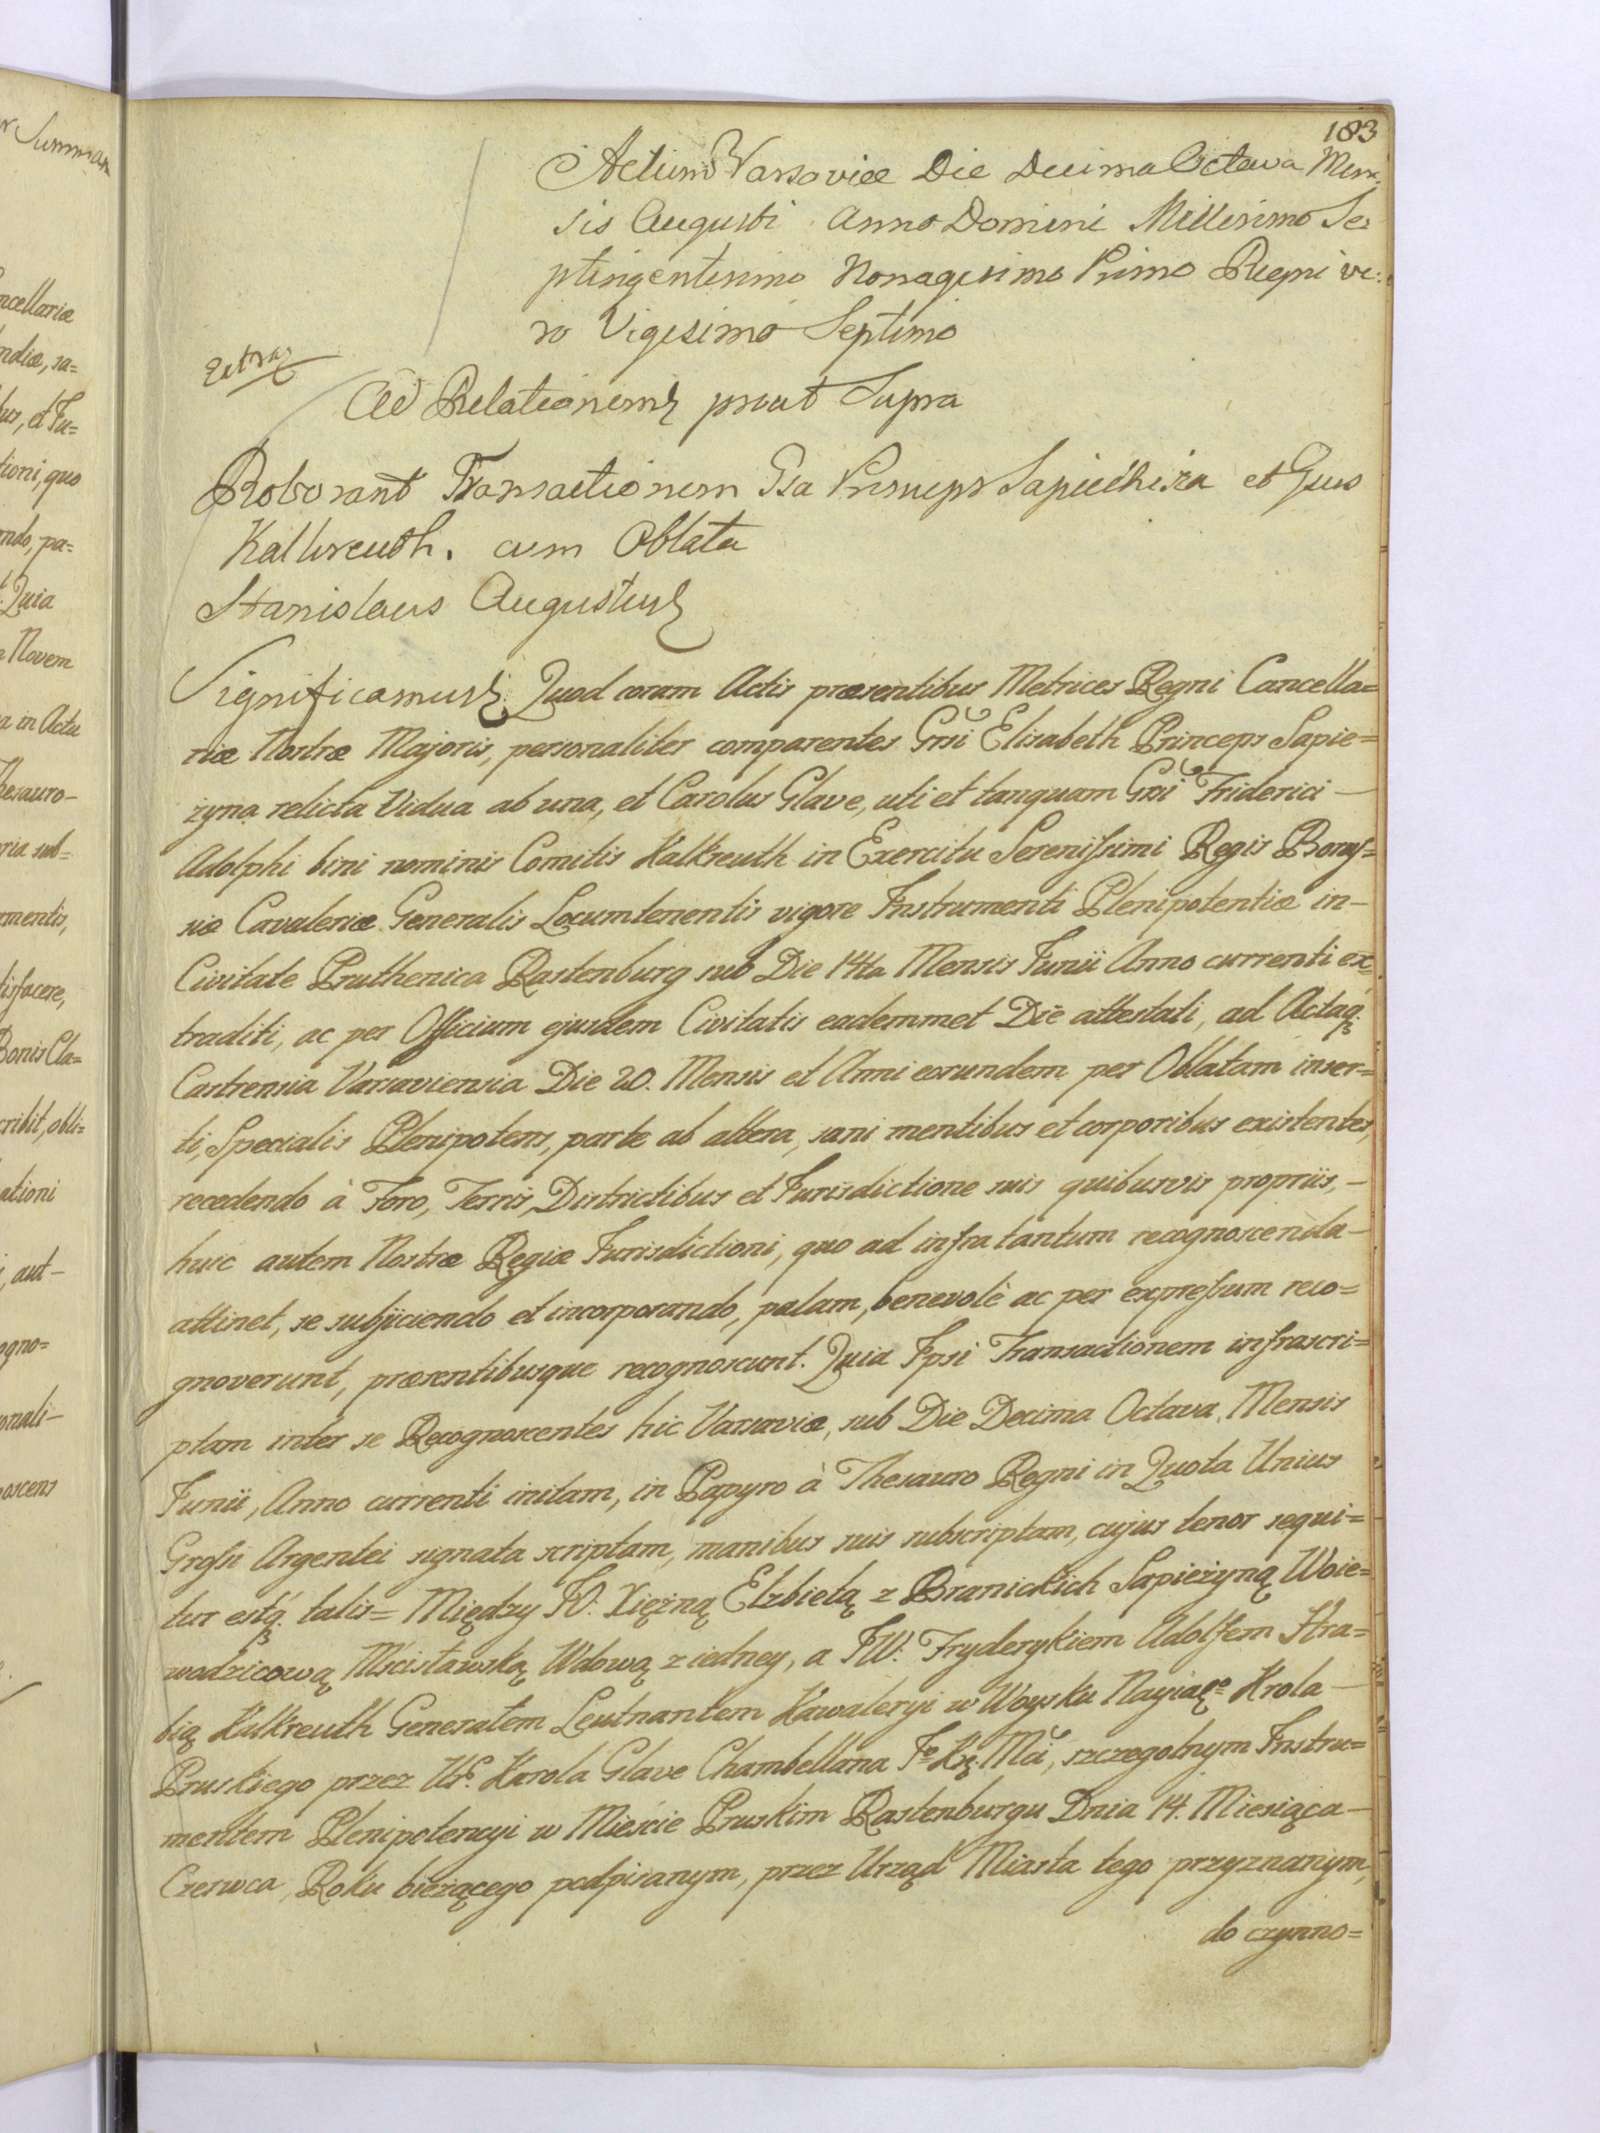 183
Actum Varsaviæ Die Decima Octava Men=
sis Augusti Anno Domini Millesimo Se=
ptingentesimo Nonagesimo Primo Regni ve:
ro Vigesimo Septimo
Extra
Ad Relationem prout Supra
Roborant Transactionem Gsa Princeps Sapiezhina et Gsus
Kalkreuth. cum Oblata
Stanislaus Augustus
Significamus Quod coram Actis præsentibus Metrices Regni Cancella=
riæ Nostræ Majoris, personaliter comparentes Grsi Elisabeth Princeps Sapie=
zyna relicta Vidua ab una, et Carolus Glave, uti et tanquam Grsi Friderici —
Adolphi bini nominis Comitis Kalkreuth in Exercitu Serenissimi Regis Boruſ=
siæ Cavaleriæ Generalis Locumtenentis vigore Instrumenti Plenipotentiæ in—
Civitate Pruthenica Rastenburg sub Die 14ta Mensis Junii Anno currenti ex=
traditi, ac per Officium ejusdem Civitatis eademmet Die attestati, ad Actaq.
Castrensia Varsaviensia Die 20. Mensis et Anni eorundem per Oblatam inser=
ti, Specialis Plenipotens, parte ab altera, sani mentibus et corporibus existentes,
recedendo à Foro, Terris, Districtibus et Jurisdictione suis quibusvis propriis, —
huic autem Nostræ Regiæ Jurisdictioni, quo ad infra tantum recognoscenda—
attinet, se subjiciendo et incorporando, palam, benevolè ac per expressum reco=
gnoverunt, præsentibusque recognoscunt. Quia Ipsi Transactionem infrascri=
ptam inter se Recognoscentes hic Varsaviæ, sub Die Decima Octava Mensis
Junii, Anno currenti initam, in Papyro à Thesauro Regni in Quota Unius
Grossi Argentei signata scriptam, manibus suis subscriptam, cujus tenor sequi=
tur estq. talis= Między JO. Xiężną Elzbietą z Branickich Sapieżyną Woie=
wodzicową Mścisławską Wdową z iedney, a JW. Fryderykiem Adolfem Hra=
bią Kalkreuth Generałem Leutnantem Kawaleryi w Woysku Nayiaśgo Krola —
Pruskiego przez Uro Karola Glave Chambellana Jo Kr. Mci, szczegolnym Instru=
mentem Plenipotencyi w Mieście Pruskim Rastenburgu Dnia 14. Miesiąca—
Czerwca, Roku bieżącego podpisanym, przez Urząd Miasta tego przyznanym,
do czynno=
r Summam
ncellariæ
ndiæ, sa=
bus, et Ju=
tioni, quo
ando, pa=
Quia
a Novem
a in Actu
Thesauro—
ria sub=
rmentis,
tisfacere,
Bonis Cla=
cribit, obli=
ationi
i, aut—
ogno=
onali—
noscens